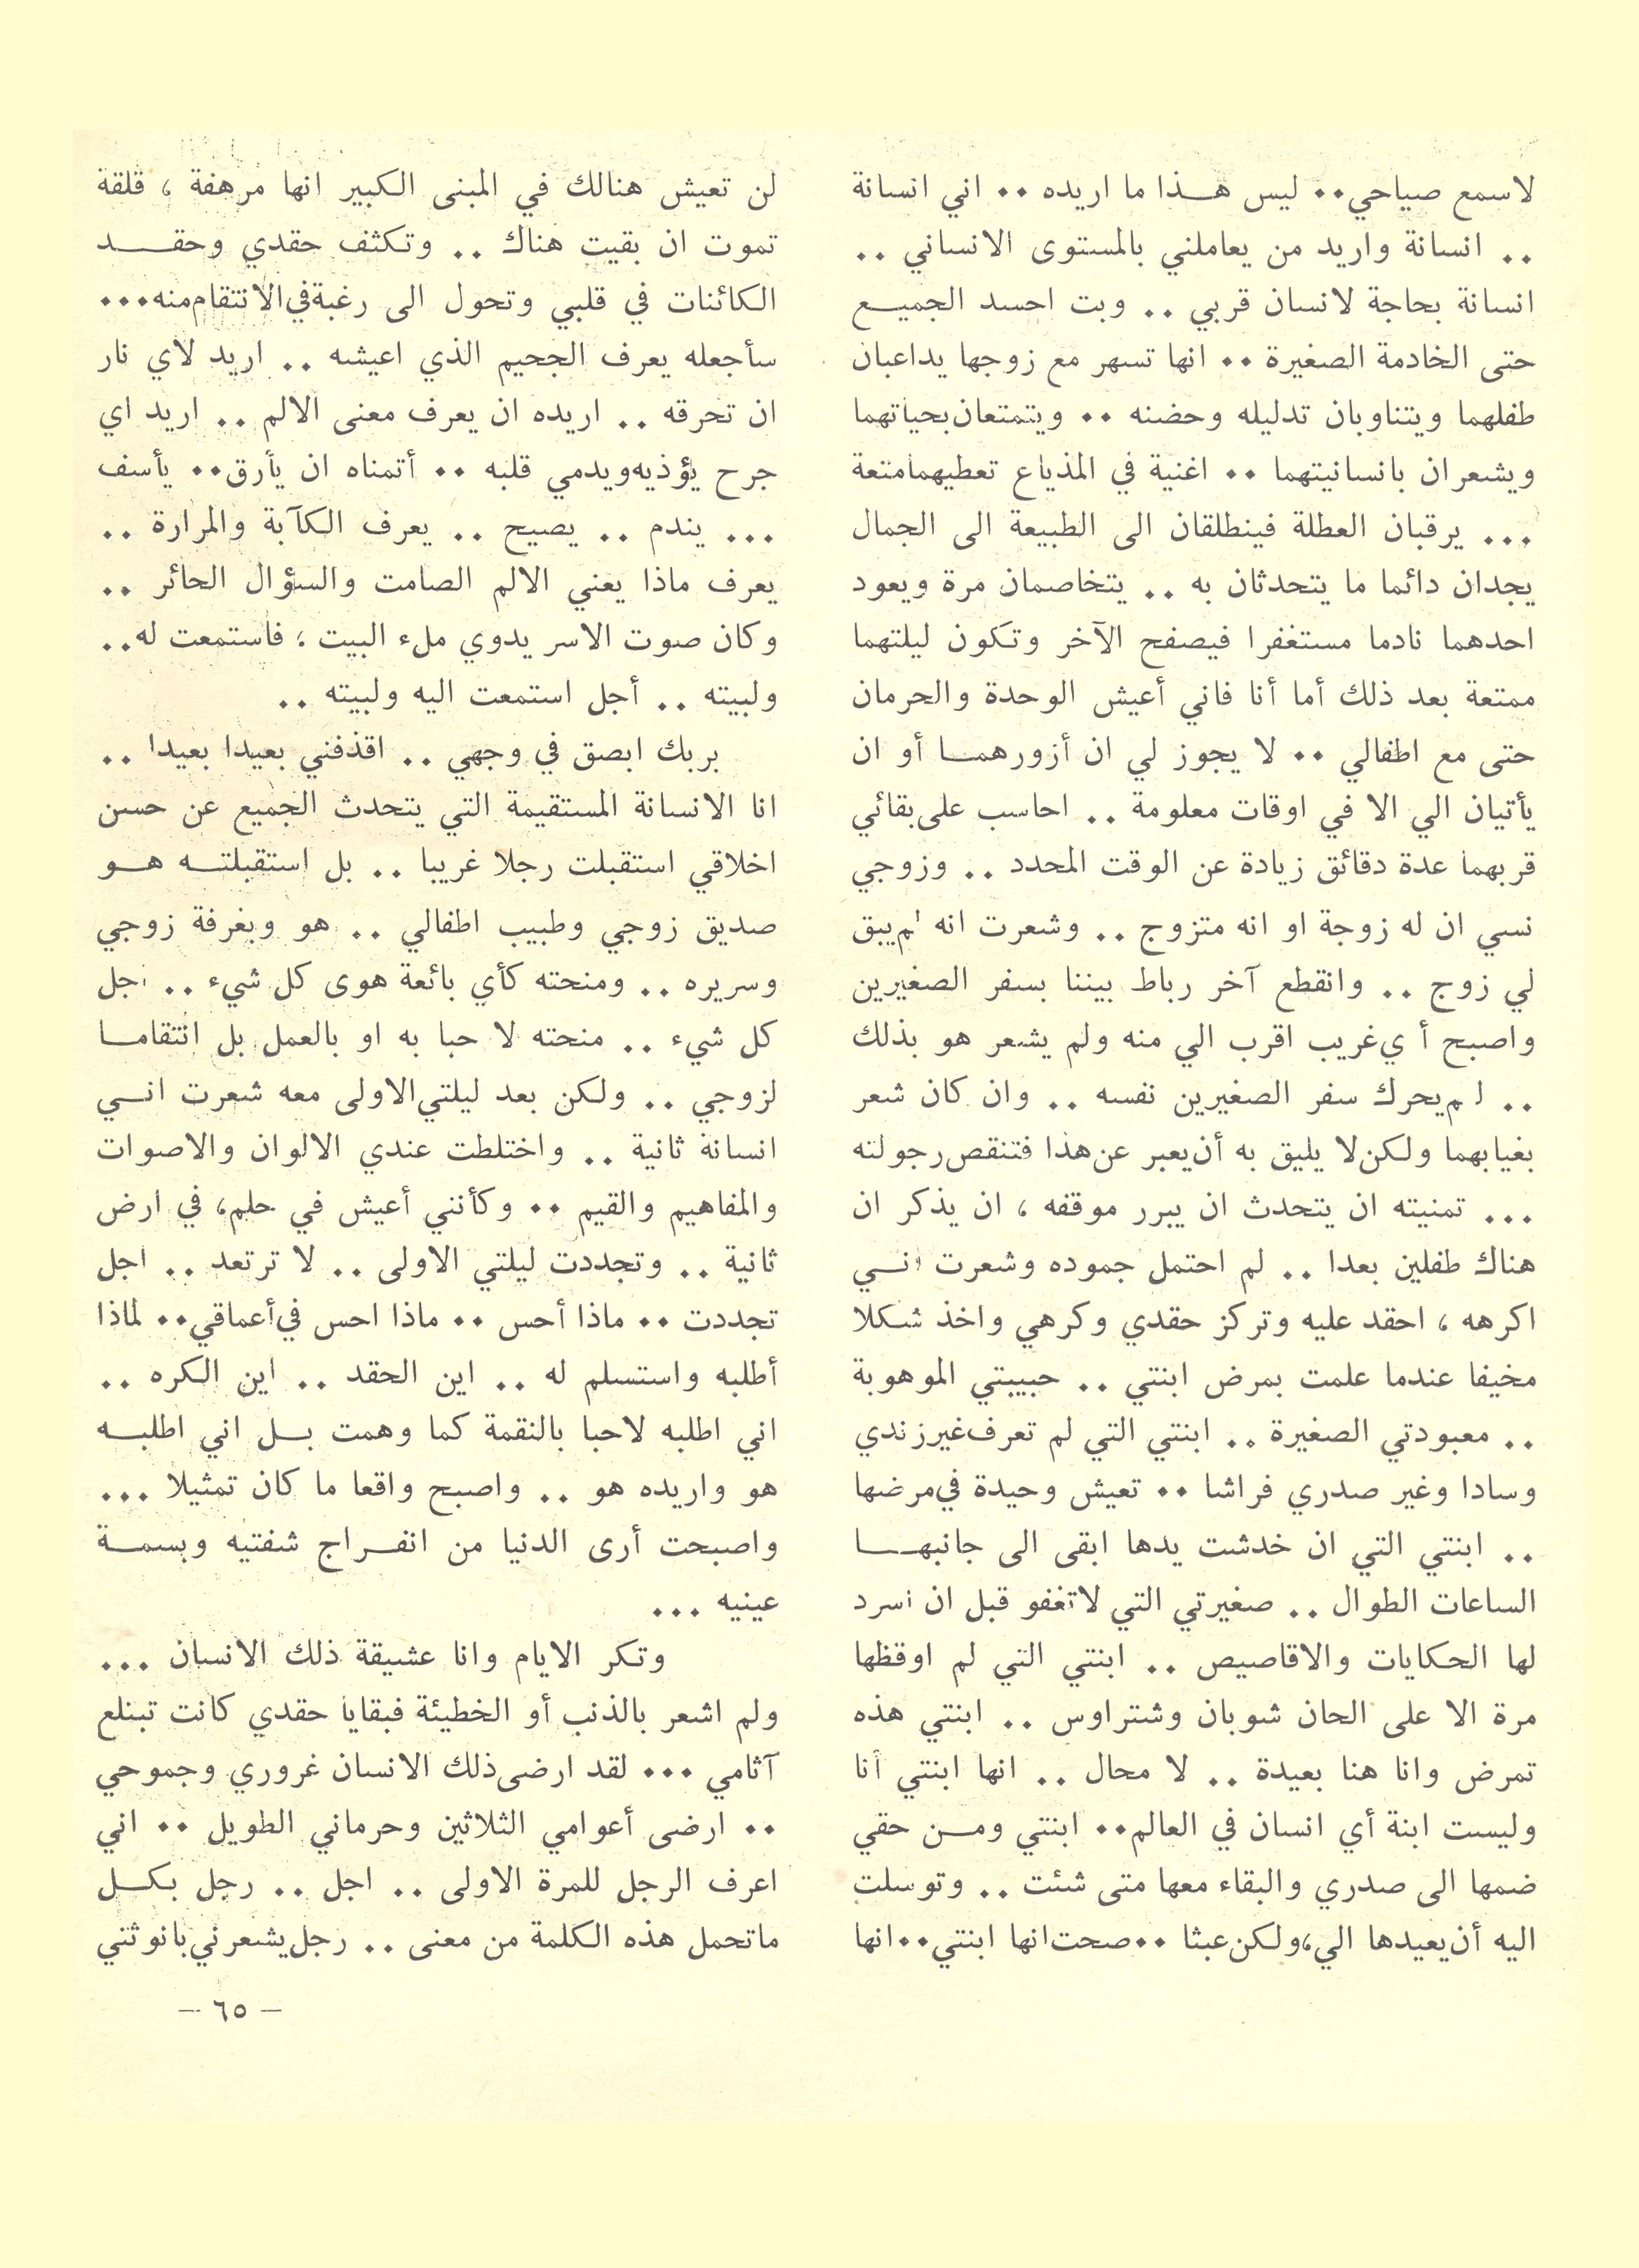 لاسمع صياحي.. ليس هـذا ما اريده .. اني انسانة
.. انسانة واريد من يعاملني بالمستوى الانساني ..
انسانة بحاجة لانسان قربي .. وبت احسد الجميـع
حتى الخادمة الصغيرة .. انها تسهر مع زوجها يداعبان
طفلهما ويتناوبان تدليله وحضنه .. ويتمتعان بحياتهما
ويشعران بانسانيتهما .. اغنية في المذياع تعطيهما متعة
... يرقبان العطلة فينطلقان الى الطبيعة الى الجمال
يجدان دائما ما يتحدثان به .. يتخاصمان مرة ويعود
احدهما نادما مستغفرا فيصفح الآخر وتكون ليلتهما
ممتعة بعد ذلك أما أنا فاني أعيش الوحدة والحرمان
حتى مع اطفالي .. لا يجوز لي ان أزورهمـا أو ان
يأتيان الي الا في اوقات معلومة .. احاسب على بقائي
قربهما عدة دقائق زيادة عن الوقت المحدد .. وزوجي
نسي ان له زوجة او انه متزوج .. وشعرت انه لم يبق
لي زوج .. وانقطع آخر رباط بيننا بسفر الصغيرين
واصبح أي غريب اقرب الي منه ولم يشعر هو بذلك
.. لم يحرك سفر الصغيرين نفسه .. وان كان شعر
بغيابهما ولكن لا يليق به أن يعبر عن هذا فتنقص رجولته
... تمنيته ان يتحدث ان يبرر موقفه ، ان يذكر ان
هناك طفلين بعدا .. لم احتمل جموده وشعرت انـي
اكرهه ، احقد عليه وتركز حقدي وكرهي واخذ شكلا
مخيفا عندما علمت بمرض ابنتي .. حبيبتي الموهوبة
.. معبودتي الصغيرة .. ابنتي التي لم تعرف غير زندي
وسادا وغير صدري فراشا .. تعيش وحيدة في مرضها
.. ابنتي التي ان خدشت يدها ابقى الى جانبهـا
الساعات الطوال .. صغيرتي التي لا تغفو قبل ان اسرد
لها الحكايات والاقاصيص .. ابنتي التي لم اوقظها
مرة الا على الحان شوبان وشتراوس .. ابنتي هذه
تمرض وانا هنا بعيدة .. لا محال .. انها ابنتي أنا
وليست ابنة أي انسان في العالم.. ابنتي ومـن حقي
ضمها الى صدري والبقاء معها متى شئت .. وتوسلت
اليه أن يعيدها الي، ولكن عبثا .. صحت انها ابنتي.. انها
لن تعيش هنالك في المبنى الكبير انها مرهفة ، قلقة
تموت ان بقيت هناك .. وتكثف حقدي وحقـد
الكائنات في قلبي وتحول الى رغبة في الانتقام منه...
سأجعله يعرف الجحيم الذي اعيشه .. اريد لأي نار
ان تحرقه .. اريده ان يعرف معنى الالم .. اريد اي
جرح يؤذيه ويدمي قلبه .. أتمناه ان يأرق.. يأسف
... يندم .. يصيح .. يعرف الكآبة والمرارة ..
يعرف ماذا يعني الالم الصامت والسؤال الحائر ..
وكان صوت الاسر يدوي ملء البيت ؛ فاستمعت له..
ولبيته .. أجل استمعت اليه ولبيته ..
بربك ابصق في وجهي .. اقذفني بعيدا بعيدا ..
انا الانسانة المستقيمة التي يتحدث الجميع عن حسن
اخلاقي استقبلت رجلا غريبا .. بل استقبلتـه هـو
صديق زوجي وطبيب اطفالي .. هو وبغرفة زوجي
وسريره .. ومنحته كأي بائعة هوى كل شيء .. اجل
كل شيء .. منحته لا حبا به او بالعمل بل انتقامـا
لزوجي .. ولكن بعد ليلتي الاولى معه شعرت انـي
انسانة ثانية .. واختلطت عندي الالوان والاصوات
والمفاهيم والقيم .. وكأنني أعيش في حلم، في ارض
ثانية .. وتجددت ليلتي الاولى .. لا ترتعد .. اجل
تجددت .. ماذا أحس .. ماذا احس في أعماقي.. لماذا
أطلبه واستسلم له .. اين الحقد .. اين الكره ..
اني اطلبه لا حبا بالنقمة كما وهمت بـل اني اطلبـه
هو واريده هو .. واصبح واقعا ما كان تمثيلا ...
واصبحت أرى الدنيا من انفـراج شفتيه وبسمـة
عينيه ...
وتكر الايام وانا عشيقة ذلك الانسان ...
ولم اشعر بالذنب أو الخطيئة فبقايا حقدي كانت تبتلع
آثامي ... لقد ارضى ذلك الانسان غروري وجموحي
.. ارضى أعوامي الثلاثين وحرماني الطويل .. اني
اعرف الرجل للمرة الاولى .. اجل .. رجل بكـل
ما تحمل هذه الكلمة من معنى .. رجل يشعرني بانوثتي
— ٦٥ —